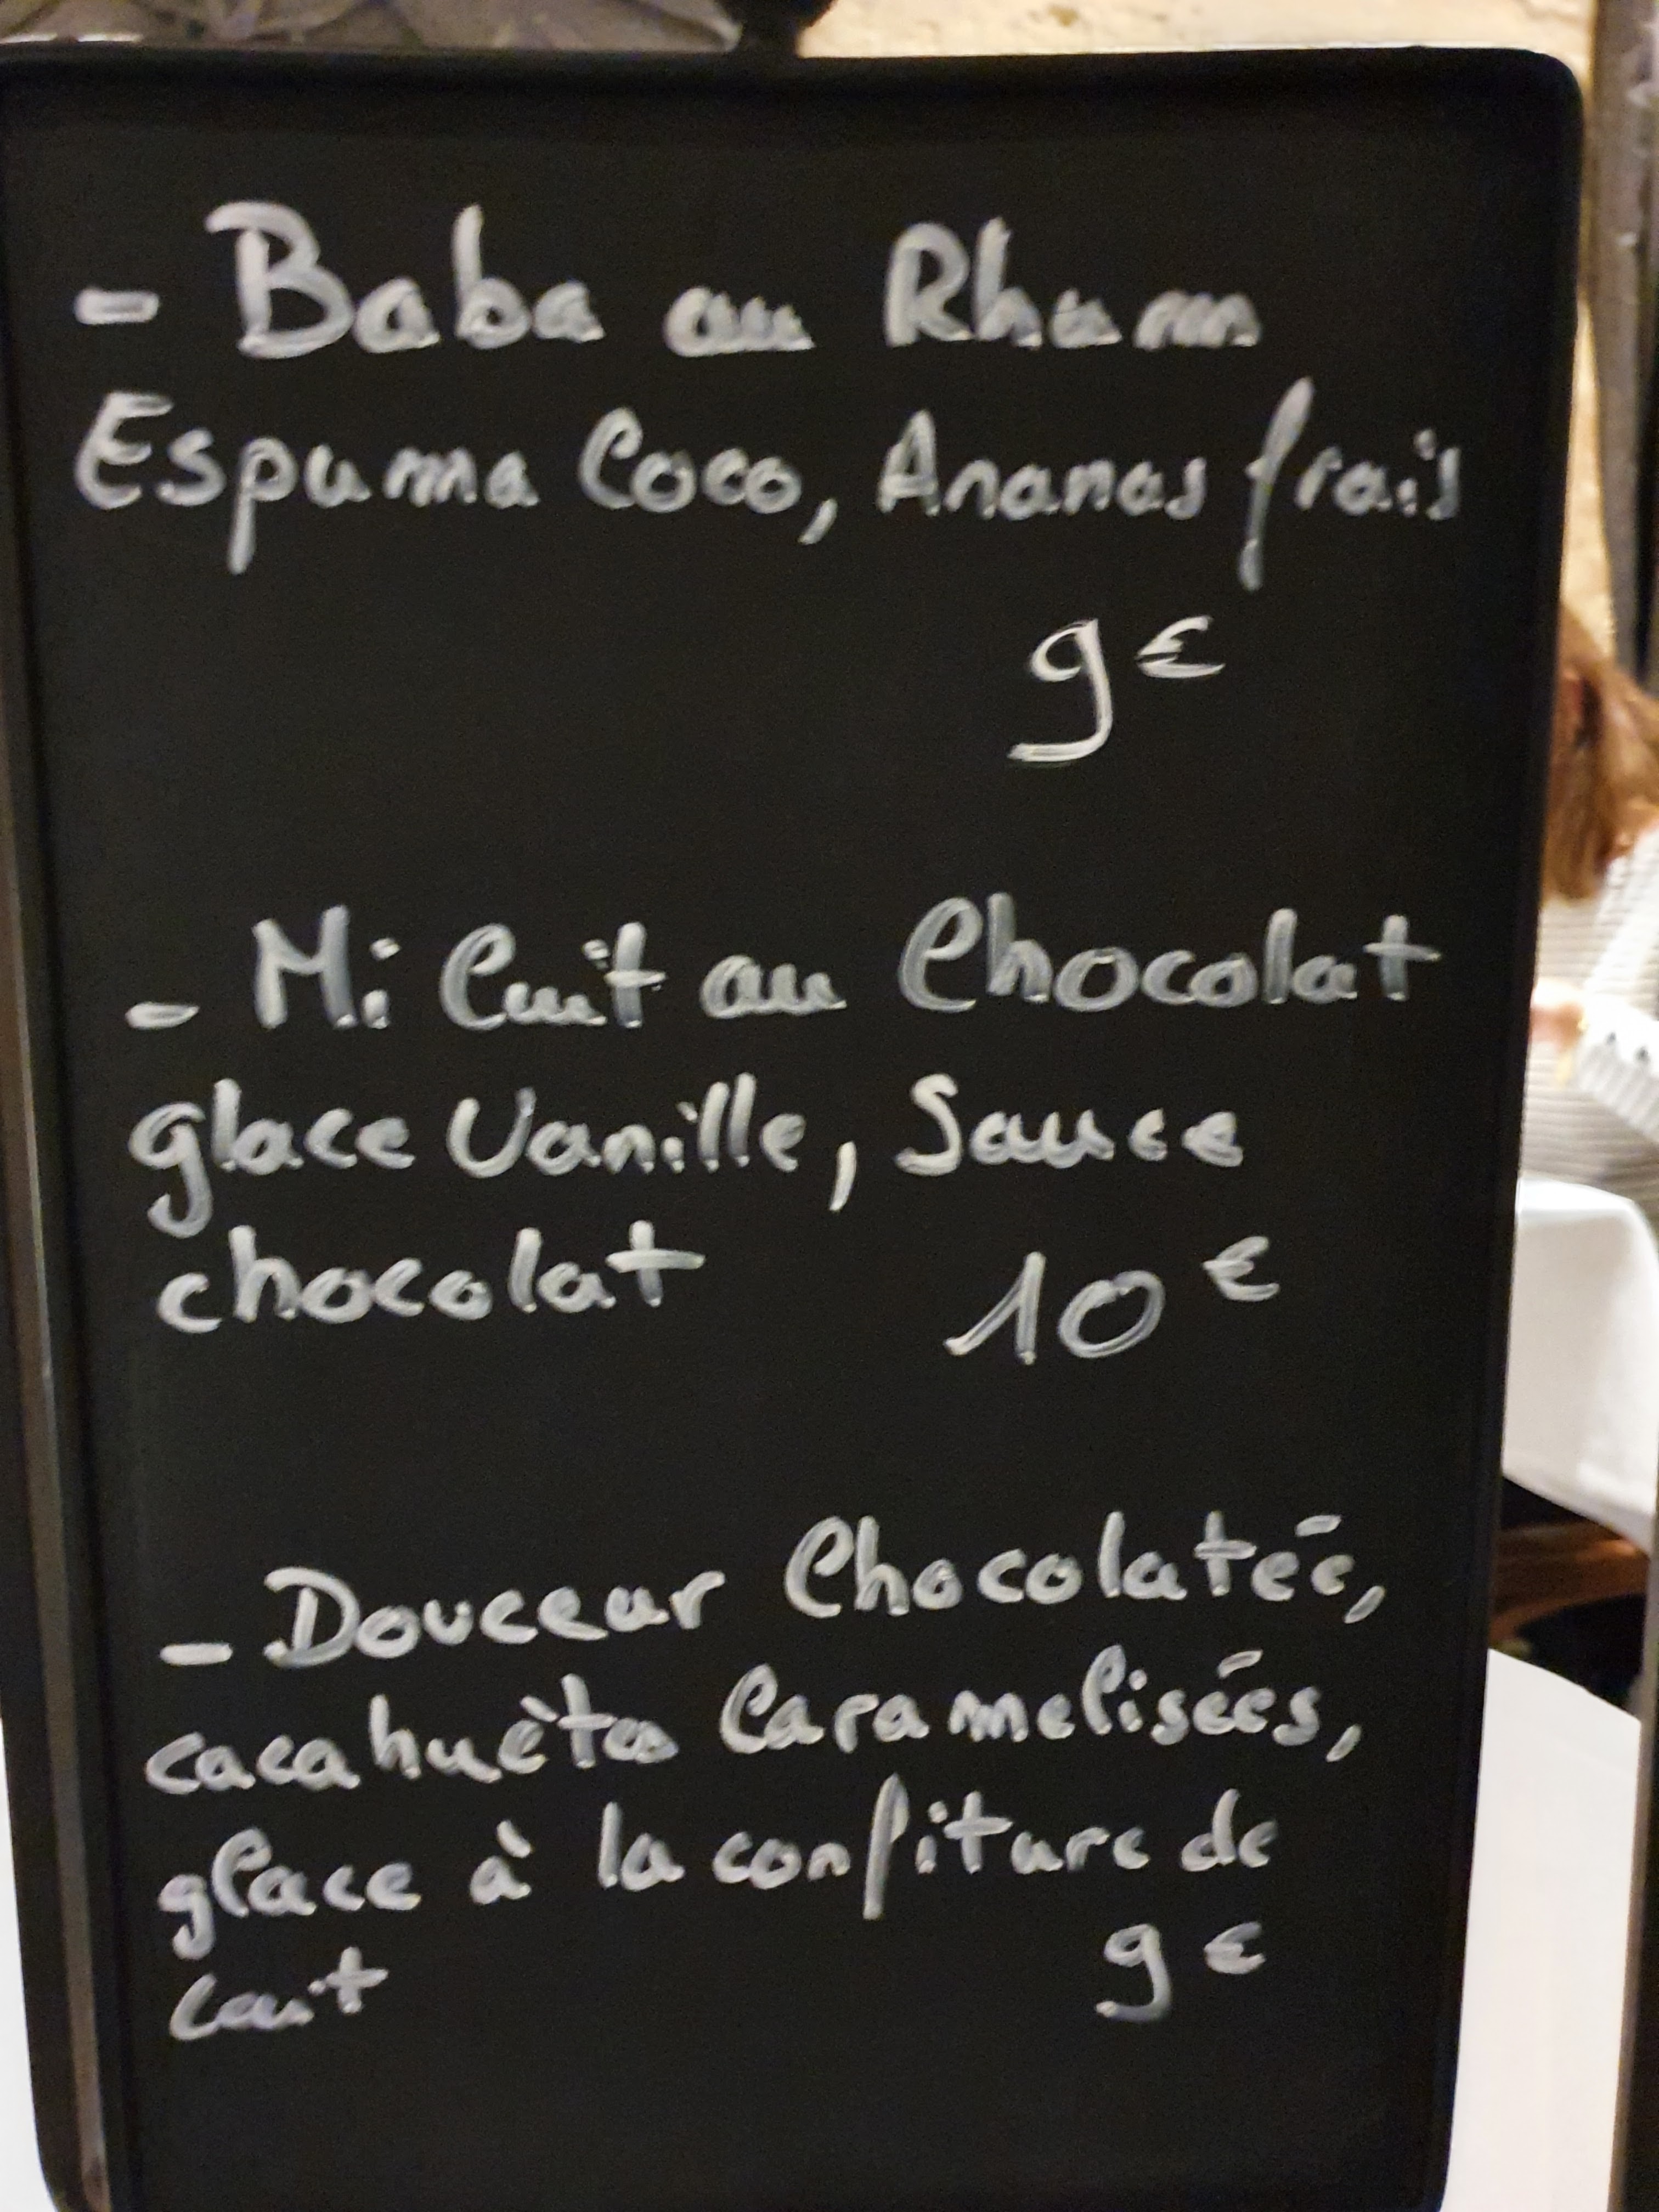 - Baba au Rhum
Espuma Coco, Ananas frais
9€
- Mi Cuit au Chocolat
glace Vanille, Sauce
chocolat 10€
- Douceur Chocolatée,
cacahuètes Caramelisées,
glace à la confiture de
Cait 9€